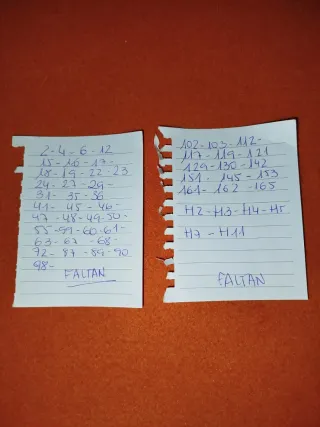 2-4-6-12
15-16-17-
18-19-22-23
24-27-29-
31-35-36
41-45-46-
47-48-49-50-
55-59-60-61-
63-67-68-
72-87-89-90
98-
FALTAN
102-103-112-
117-119-121
129-130-142
151-145-153
161-162-165
H2-H3-H4-H5
H7-H11
FALTAN